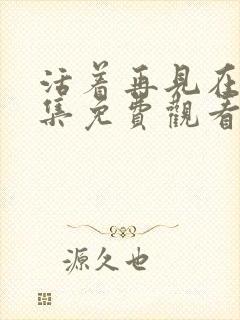 活着再見在
集免費觀看
源久也